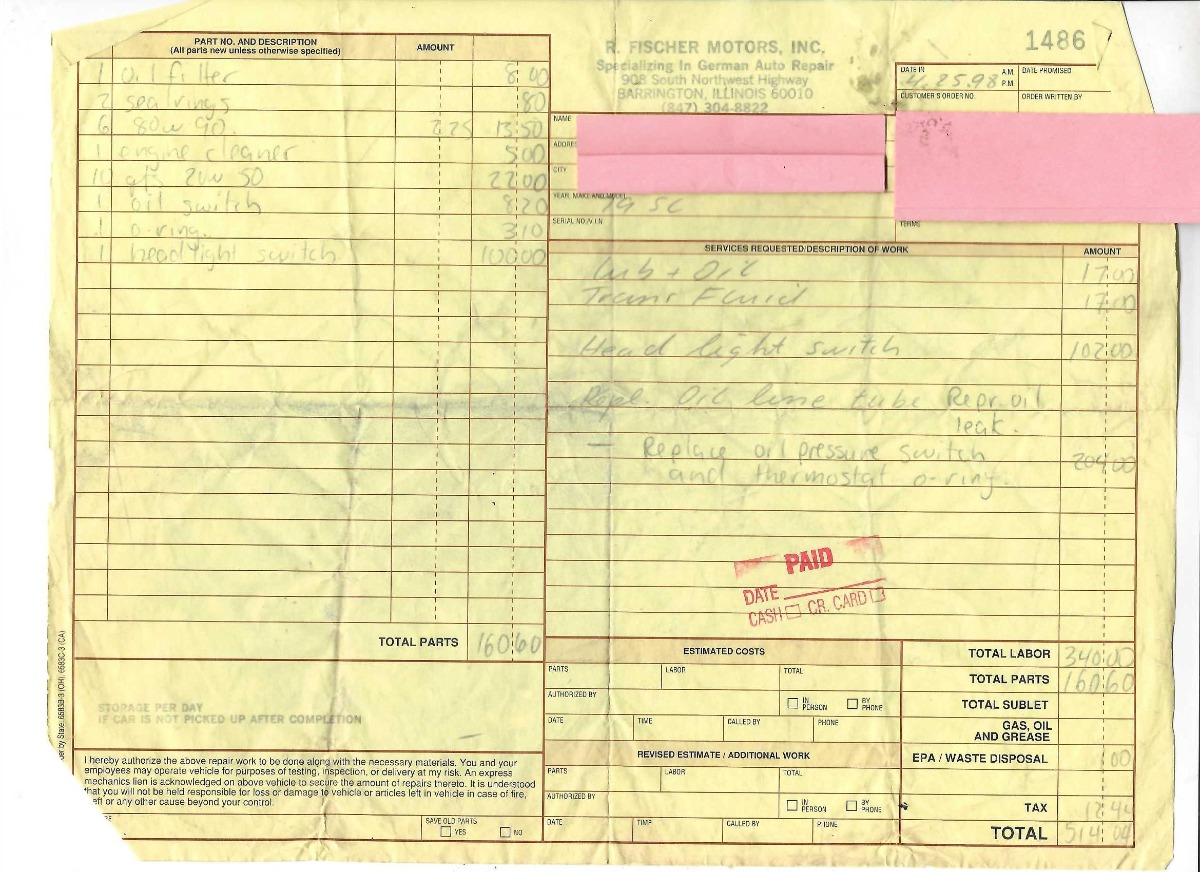 PART NO. AND DESCRIPTION
(All parts new unless otherwise specified)
AMOUNT
1 oil filter 8 00
2 seal rings 80
6 80w 90. 2 25 13 50
1 engine cleaner 5 00
10 qts 20w 50 22 00
1 oil switch 8 20
1 o-ring. 3 10
1 headlight switch 100 00
TOTAL PARTS 160 60
STORAGE PER DAY
IF CAR IS NOT PICKED UP AFTER COMPLETION
I hereby authorize the above repair work to be done along with the necessary materials. You and your
employees may operate vehicle for purposes of testing, inspection, or delivery at my risk. An express
mechanics lien is acknowledged on above vehicle to secure the amount of repairs thereto. It is understood
that you will not be held responsible for loss or damage to vehicle or articles left in vehicle in case of fire,
or any other cause beyond your control.
SAVE OLD PARTS
YES NO
by State. 6583B-3 (OH), 6583C-3 (CA)
R. FISCHER MOTORS, INC.
Specializing In German Auto Repair
908 South Northwest Highway
BARRINGTON, ILLINOIS 60010
(847) 304-8822
1486
DATE IN 4.25.98 A.M. P.M. DATE PROMISED
CUSTOMER'S ORDER NO. ORDER WRITTEN BY
NAME
CITY
YEAR, MAKE AND MODEL 79 SC
SERIAL NO./V.I.N.
TERMS
SERVICES REQUESTED/DESCRIPTION OF WORK AMOUNT
Lub + Oil 17.00
Trans Fluid 17.00
Head light switch 102.00
Repl. Oil line tube Repr. oil
leak.
– Replace oil pressure switch 204.00
and thermostat o-ring.
PAID
DATE
CASH CR. CARD
ESTIMATED COSTS
PARTS LABOR TOTAL
AUTHORIZED BY IN PERSON BY PHONE
DATE TIME CALLED BY PHONE
REVISED ESTIMATE / ADDITIONAL WORK
PARTS LABOR TOTAL
AUTHORIZED BY IN PERSON BY PHONE
DATE TIME CALLED BY PHONE
TOTAL LABOR 340.00
TOTAL PARTS 160.60
TOTAL SUBLET
GAS, OIL
AND GREASE
EPA / WASTE DISPOSAL 1 00
TAX 12 44
TOTAL 514 04